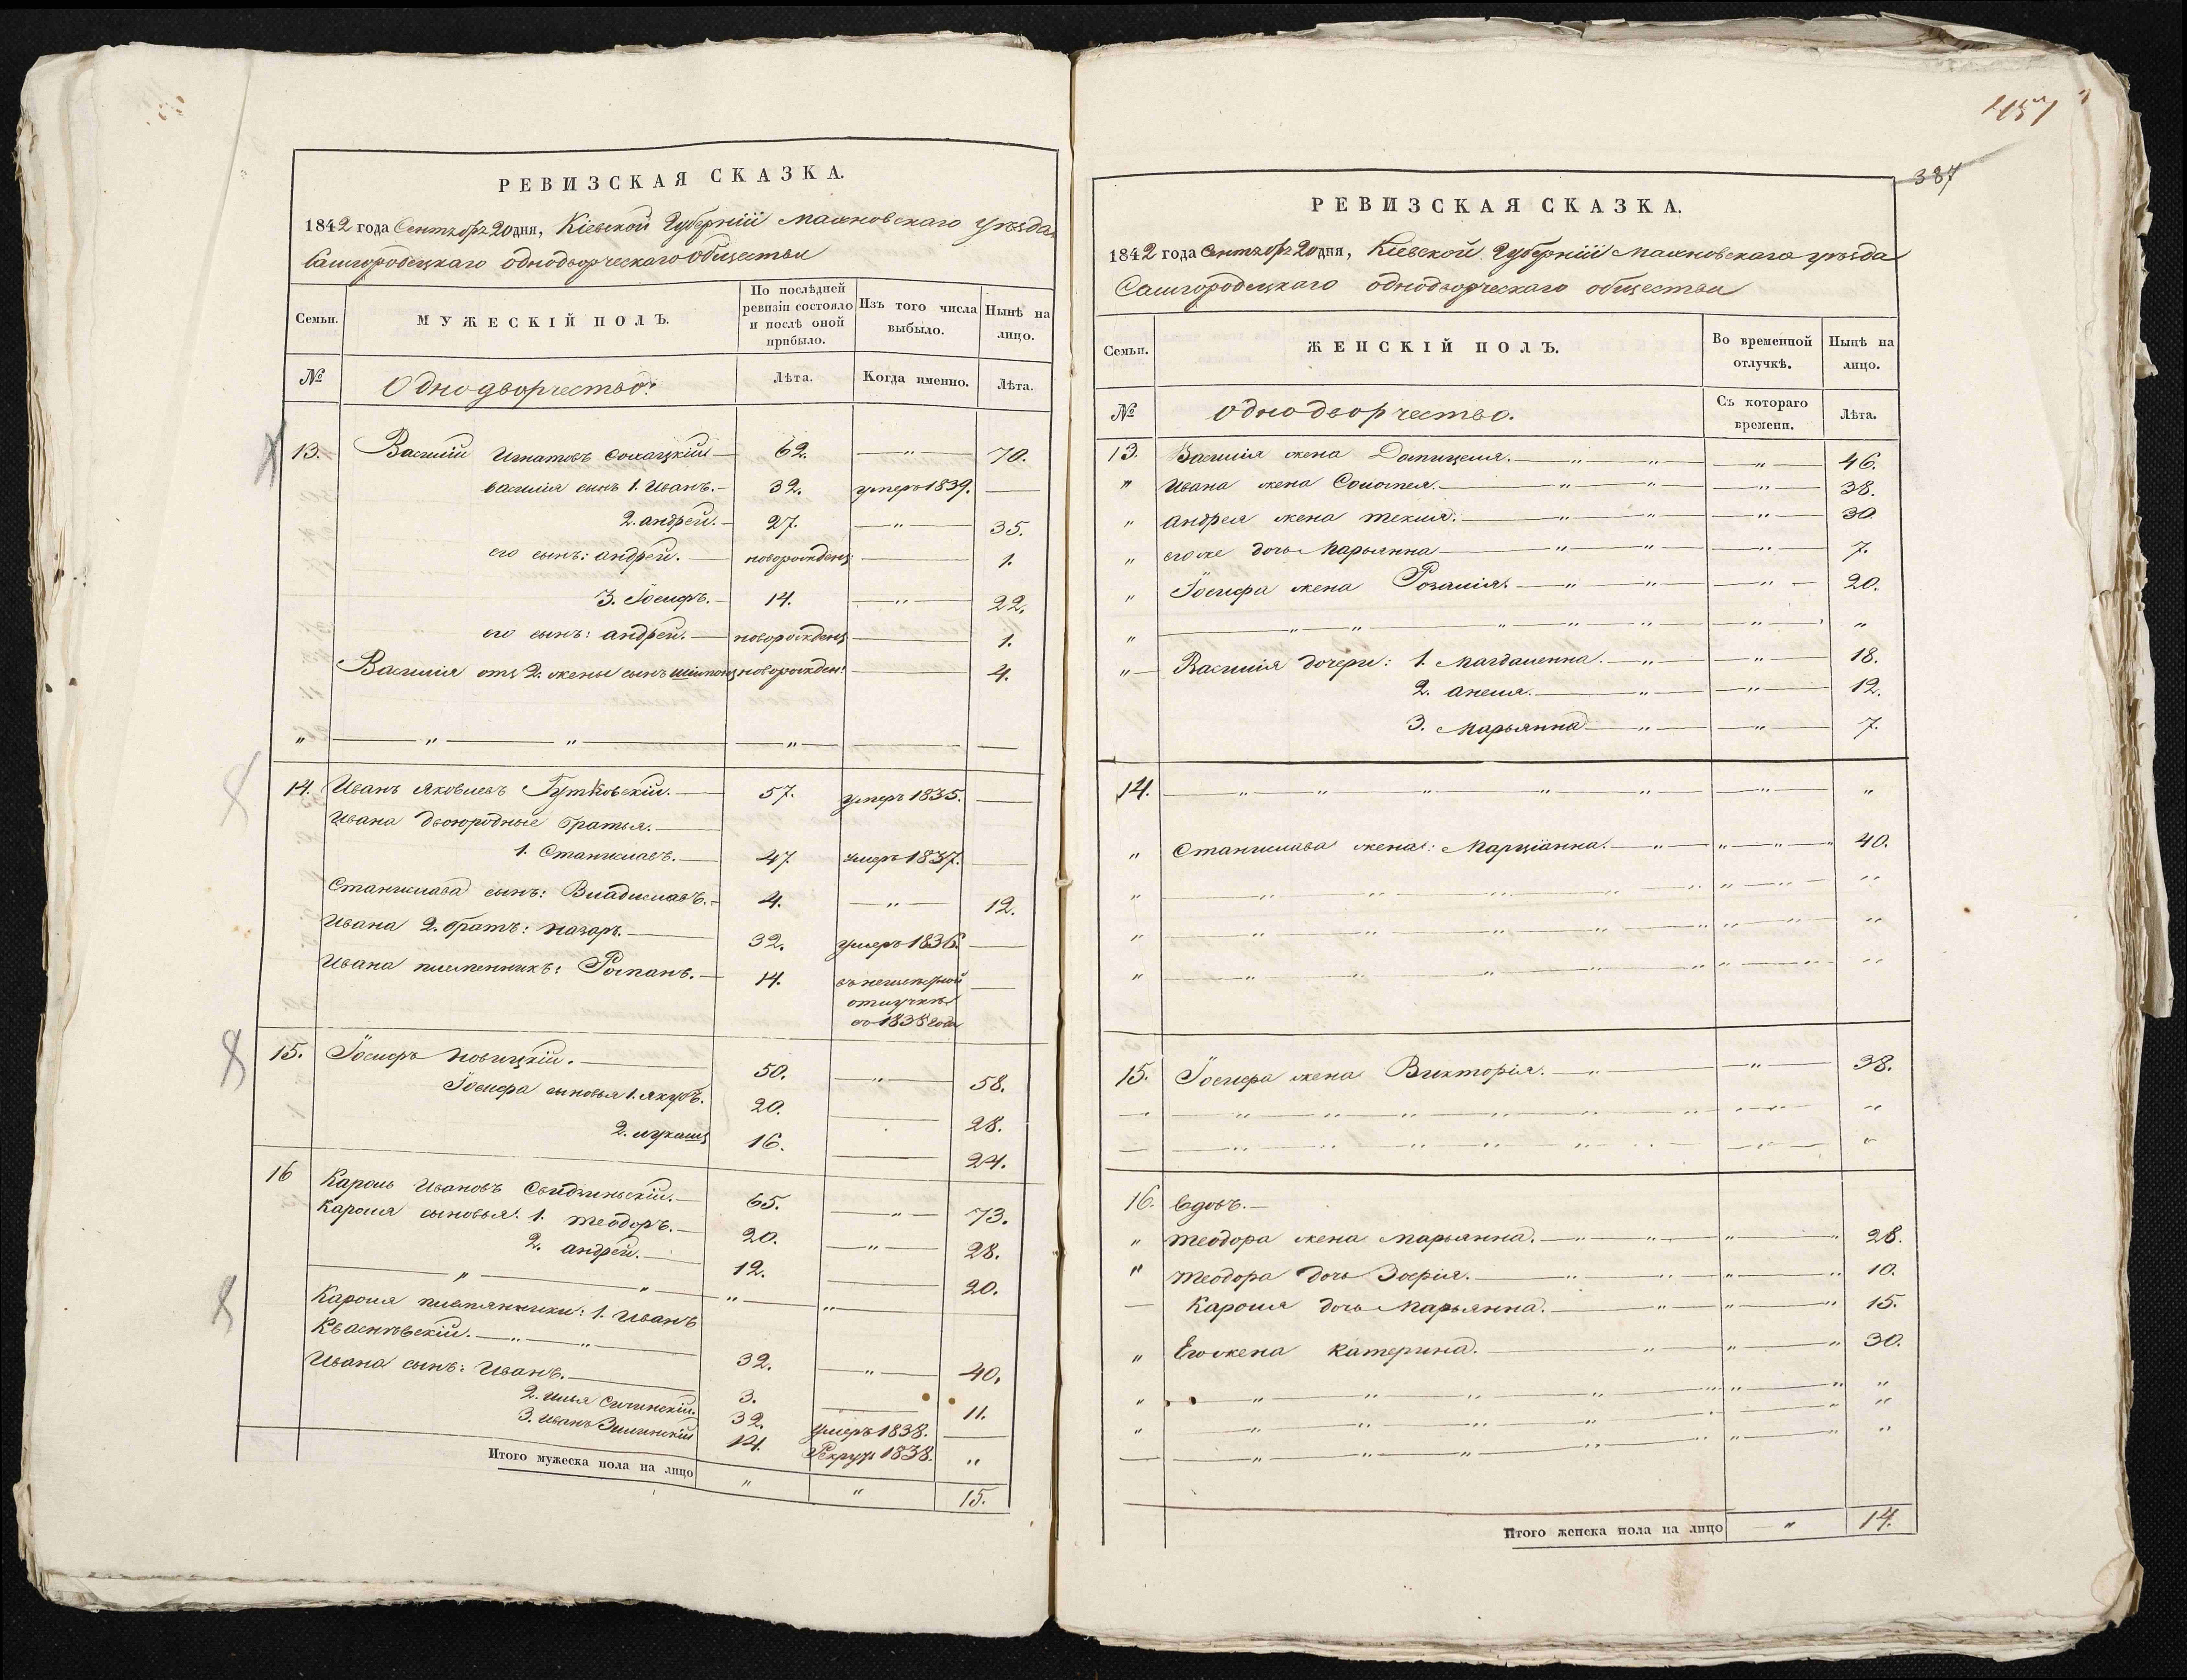 РЕВИЗСКАЯ СКАЗКА.
1842 года Сентябр 20 дня, Кіевской Губерніи Махновскаго уѣзда
Самгородецкаго однодворческаго общества
Семьи.
МУЖЕСКІЙ ПОЛЪ.
По послѣдней ревизіи состояло и послѣ оной прибыло.
Изъ того числа выбыло.
Нынѣ на лицо.
№
Однодворчество.
Лѣта.
Когда именно.
Лѣта.
13. Василій Игнатовъ 62. — " — 70.
Василія сынъ 1. Иванъ. 32. умеръ 1839. —
2. андрей. 27. — " — 35.
его сынъ: андрей. новорожденъ — 1.
3. Іосифъ. 14. — " — 22.
его сынъ: андрей. новорожденъ — 1.
Василія отъ 2. жены сынъ новорожден: — 4.
" — " — " — — " — — —
14. Иванъ Яковлевъ Гутковскій. 57. умеръ 1835. —
Ивана двоюродные братья.
1. Станиславъ. 47. умеръ 1837. —
Станислава сынъ: Владиславъ. 4. — " — 12.
Ивана 2. братъ: назаръ. 32. умеръ 1836. —
Ивана племенникъ: Романъ. 14. отлучкѣ —
съ 1838 года
15. Іосифъ Новицкій. 50. — " — 58.
Іосифа сыновья 1. Якубъ. 20. — 28.
2. лукашъ 16. — 24.
16 Кароль Ивановъ 65. — " — 73.
Кароля сыновья. 1. теодоръ. 20. — " — 28.
2. андрей. 12. — 20.
— " — " — " — "
Кароля племянники: 1. Иванъ
Квасневскій. — " — " — 32. — " — 40.
Ивана сынъ: Иванъ. 3. — 11.
2. илья 32. умеръ 1838. —
3. иванъ 14. Рекрут 1838. "
Итого мужеска пола на лицо " " 15.
457
387
РЕВИЗСКАЯ СКАЗКА.
1842 года Сентябр 20 дня, Кіевской Губерніи Махновскаго уѣзда
Самгородецкаго однодворческаго общества
Семьи.
ЖЕНСКІЙ ПОЛЪ.
Во временной отлучкѣ.
Нынѣ на лицо.
№
Однодворчество.
Съ котораго времени.
Лѣта.
13. Василія жена Домицеля. — " — " — " — 46.
" Ивана жена Соломея. — " — " — " — 38.
" андрея жена текля. — " — " — " — 30
" егоже дочь Марьянна — " — " — " — 7.
" Іосифа жена Розалія. — " — " — " — 20.
" — " — " — " — " — " — " — "
" Василія дочери: 1. Магдаленна. — " — " — 18.
2. анеля. — " — " — 12.
3. Марьянна — " — " — 7.
14. — " — " — " — " — " — " — "
" Станислава жена: Марціанна. — " — " — " — " 40.
" — " — " — " — " — " — " "
" — " — " — " — " — " — " "
" — " — " — " — " — " — " "
15. Іосифа жена Викторія. — " — " — 38.
— " — " — " — " — " — " "
— " — " — " — " — " — " "
16. вдовъ. —
" теодора жена марьянна. — " — " — " — " 28.
" теодора дочь Зоефія. — " — " — " — " 10.
— Кароля дочь марьянна. — " — " — " 15.
" Его жена катерина. — " — " — " 30.
" — " — " — " — " — " — " "
" — " — " — " — " — " "
— " — " — " — " — " — " "
Итого женска пола на лицо — " — 14.